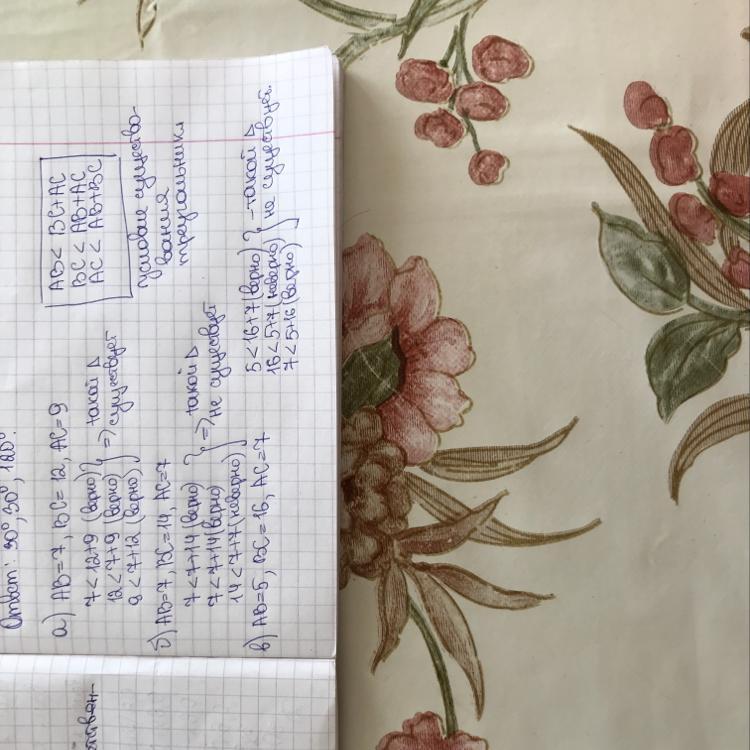 Ответ: 30°, 30°, 120°.
а) AB=7, BC=12, AC=9
7<12+9 (верно)
12<7+9 (верно)
9<7+12 (верно)
=> такой Δ
существует
AB< BC+AC
BC< AB+AC
AC< AB+BC
условие существо-
вания
треугольника
б) AB=7, BC=14, AC=7
7<7+14 (верно)
7<7+14 (верно)
14<7+7 (неверно)
=> такой Δ
не существует
в) AB=5, BC=16, AC=7
5<16+7 (верно)
16<5+7 (неверно)
7<5+16 (верно)
-такой Δ
не существует.